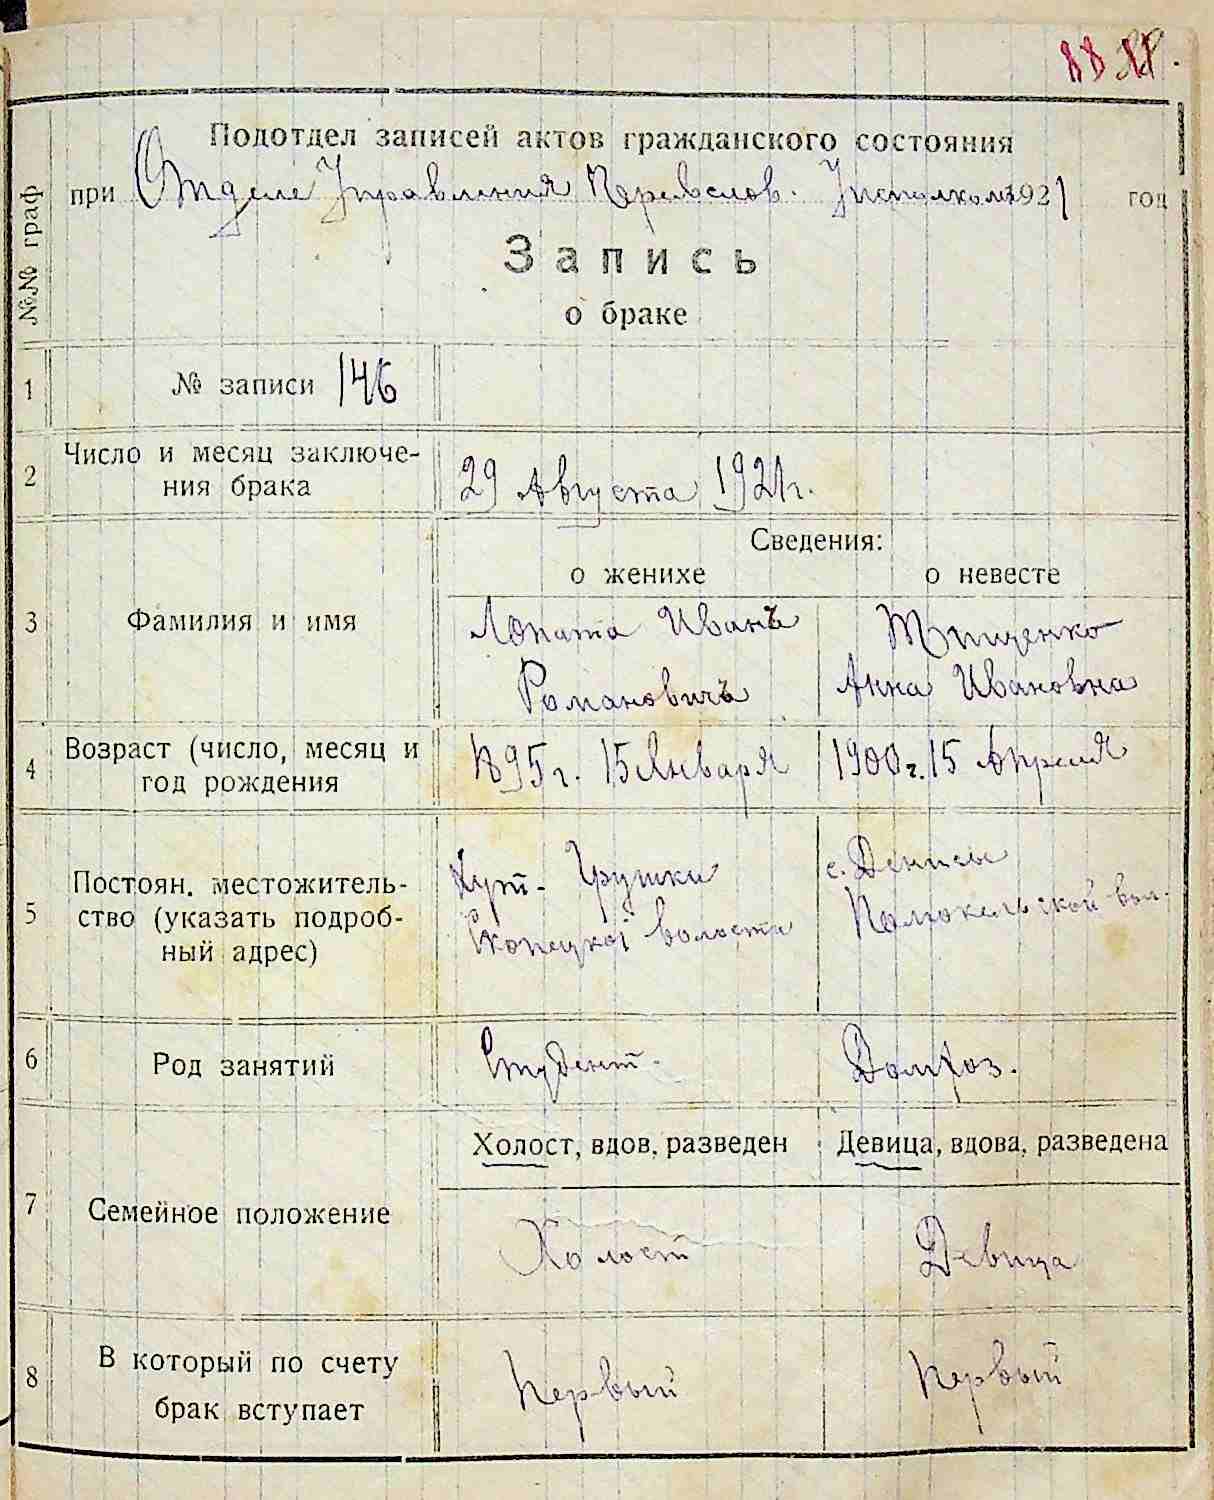 88
Подотдел записей актов гражданского состояния
№№ граф
при Отделе Управления Переяслов. Исполкома 1921 год
Запись
о браке
1 № записи 146
2 Число и месяц заключе-
ния брака
29 Августа 1921 г.
Сведения:
о женихе о невесте
3 Фамилия и имя
Лопата Иванъ
Романовичъ
Тищенко
Анна Ивановна
4 Возраст (число, месяц и
год рождения
1895 г. 15 Января
1900 г. 15 Апреля
5 Постоян. местожитель-
ство (указать подроб-
ный адрес)
Хут. Грушки
волости
с. Денисы
вол.
6 Род занятий
Студент.
Домхоз.
7 Семейное положение
Холост, вдов, разведен
Девица, вдова, разведена
Холост
Девица
8 В который по счету
брак вступает
Первый
Первый